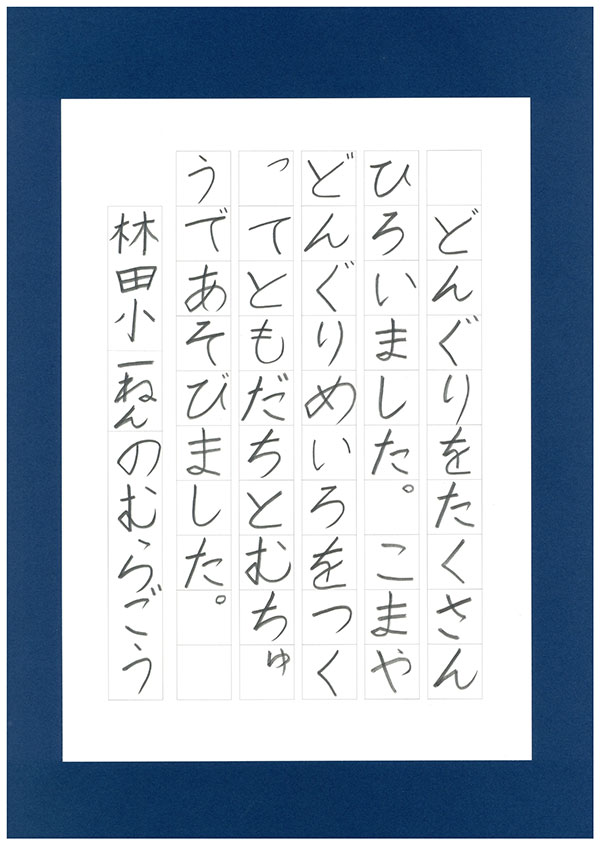 どんぐりをたくさん
ひろいました。こまや
どんぐりめいろをつく
ってともだちとむちゅ
うであそびました。
林田小一ねんのむらごう